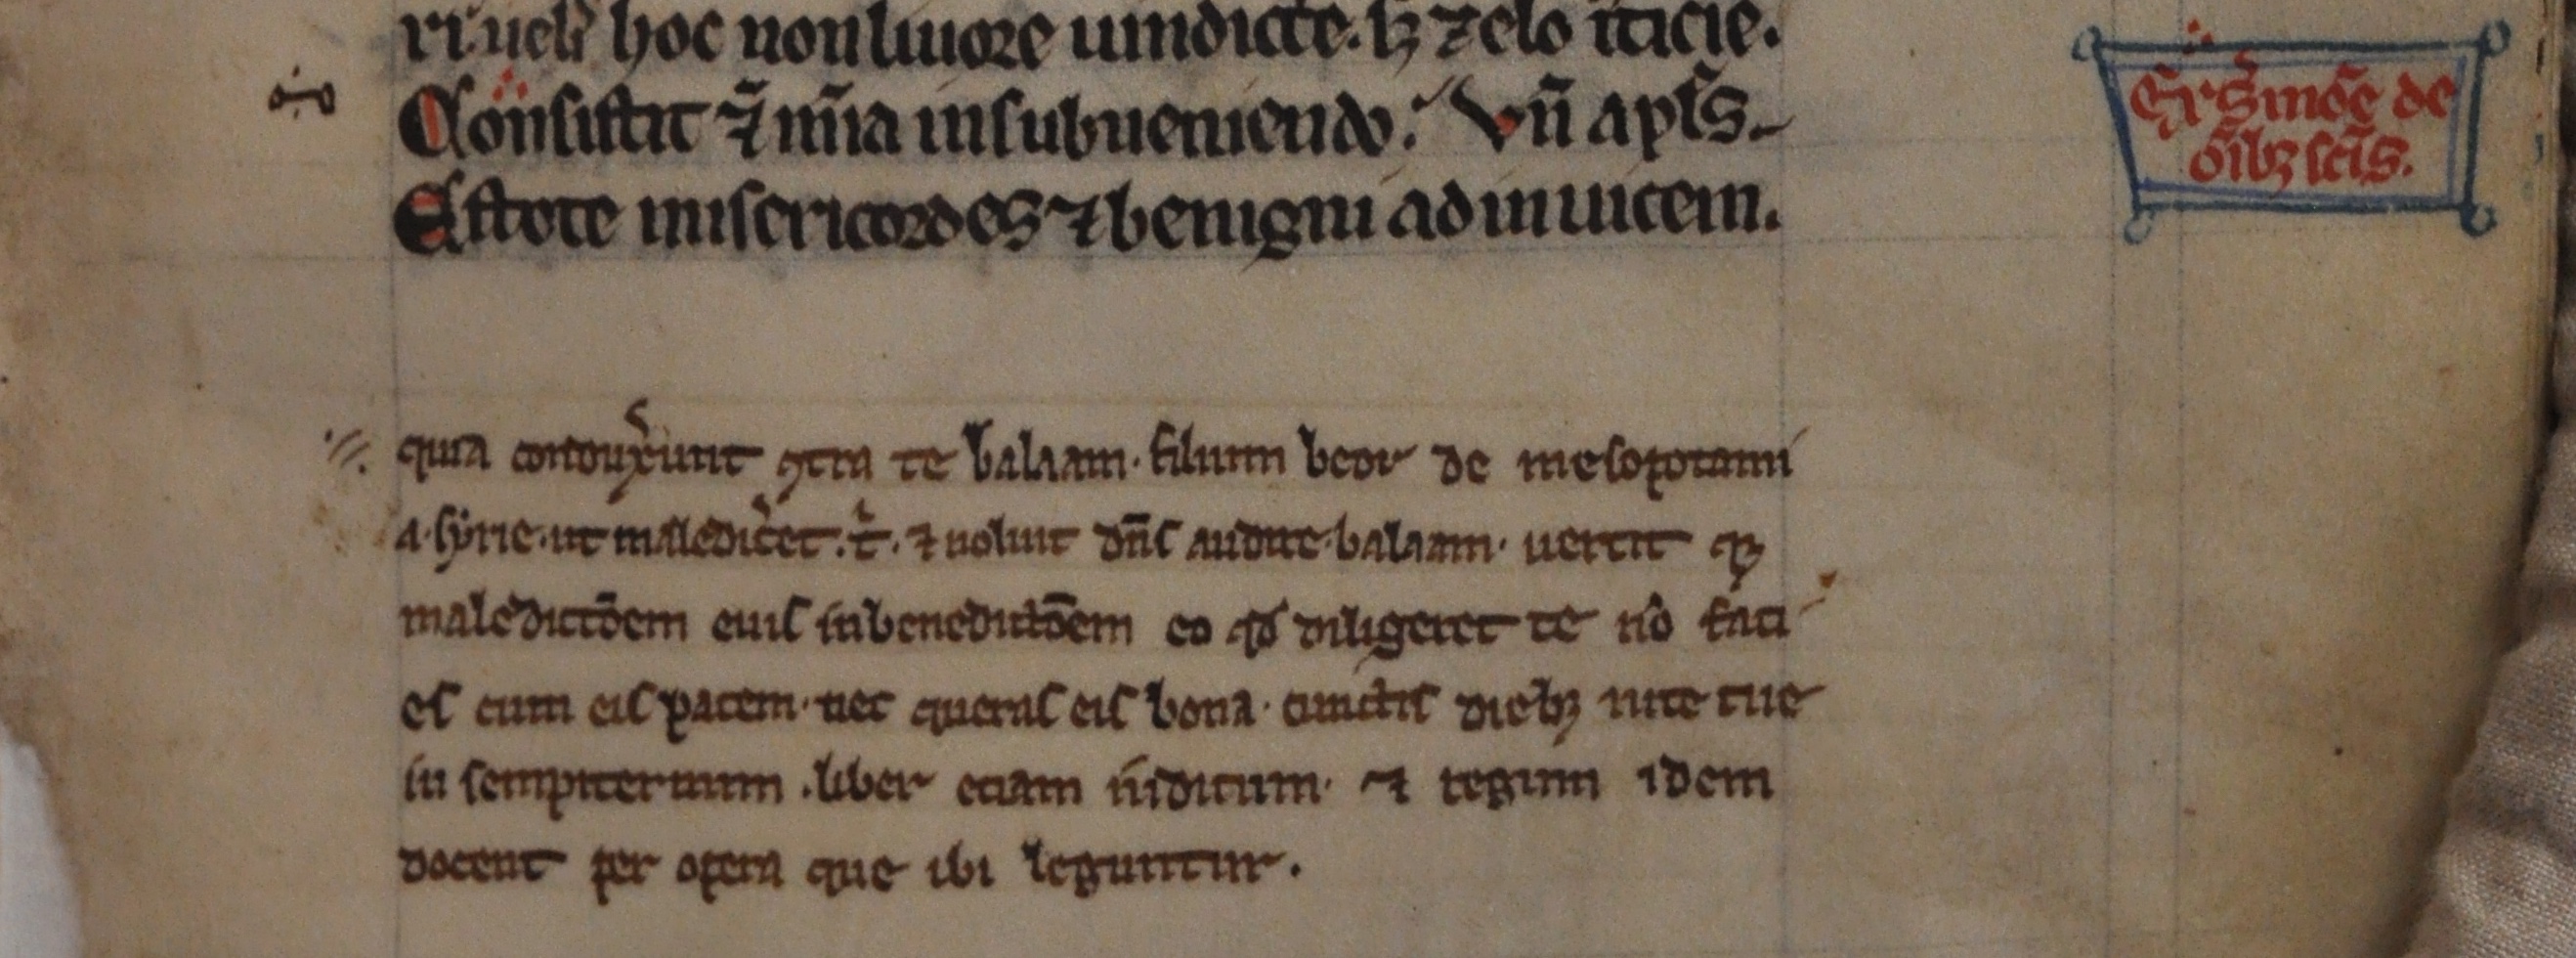 ri. uelꝰ hoc non liuore uindicte. sꝫ zelo iticie.
Consistit ⁊̃ mĩa in subueniendo. Vñ apl̃s.
Estote misericordes ⁊ benigni ad inuicem.
Ex s̃moẽ de
oĩbꝫ scĩs.
quia conduxerunt ꝯtra te balaam. filium beor de mesopotami
a. syrie. ut malediceret. t̾. ⁊ noluit dñs audire balaam. uertit qꝫ
maledictõem eius in benedictõem eo qđ diligeret te nõ faci
es cum eis pacem. nec queras eis bona. cunctis diebꝫ uite tue
in sempiternum. liber etiam iudicum. ⁊ regum idem
docent per opera que ibi leguntur.